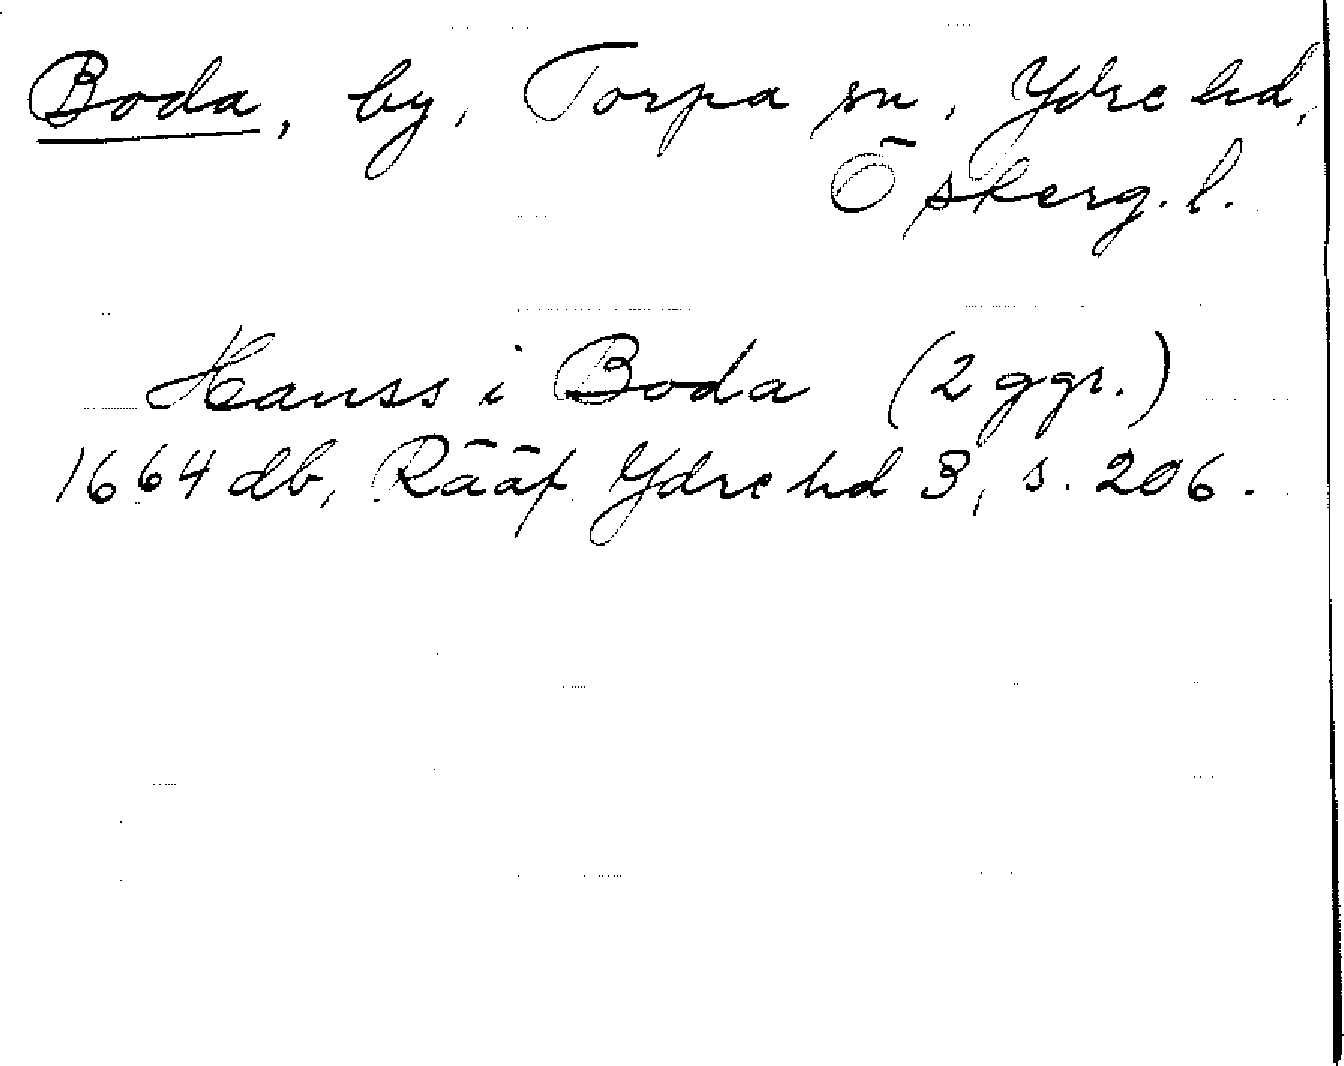 Boda, by, Torpa sn, Ydre hd,
Österg. l.
Hanss i Boda (2 ggr.)
1664 db, Rääf Ydre hd 3, s. 206.